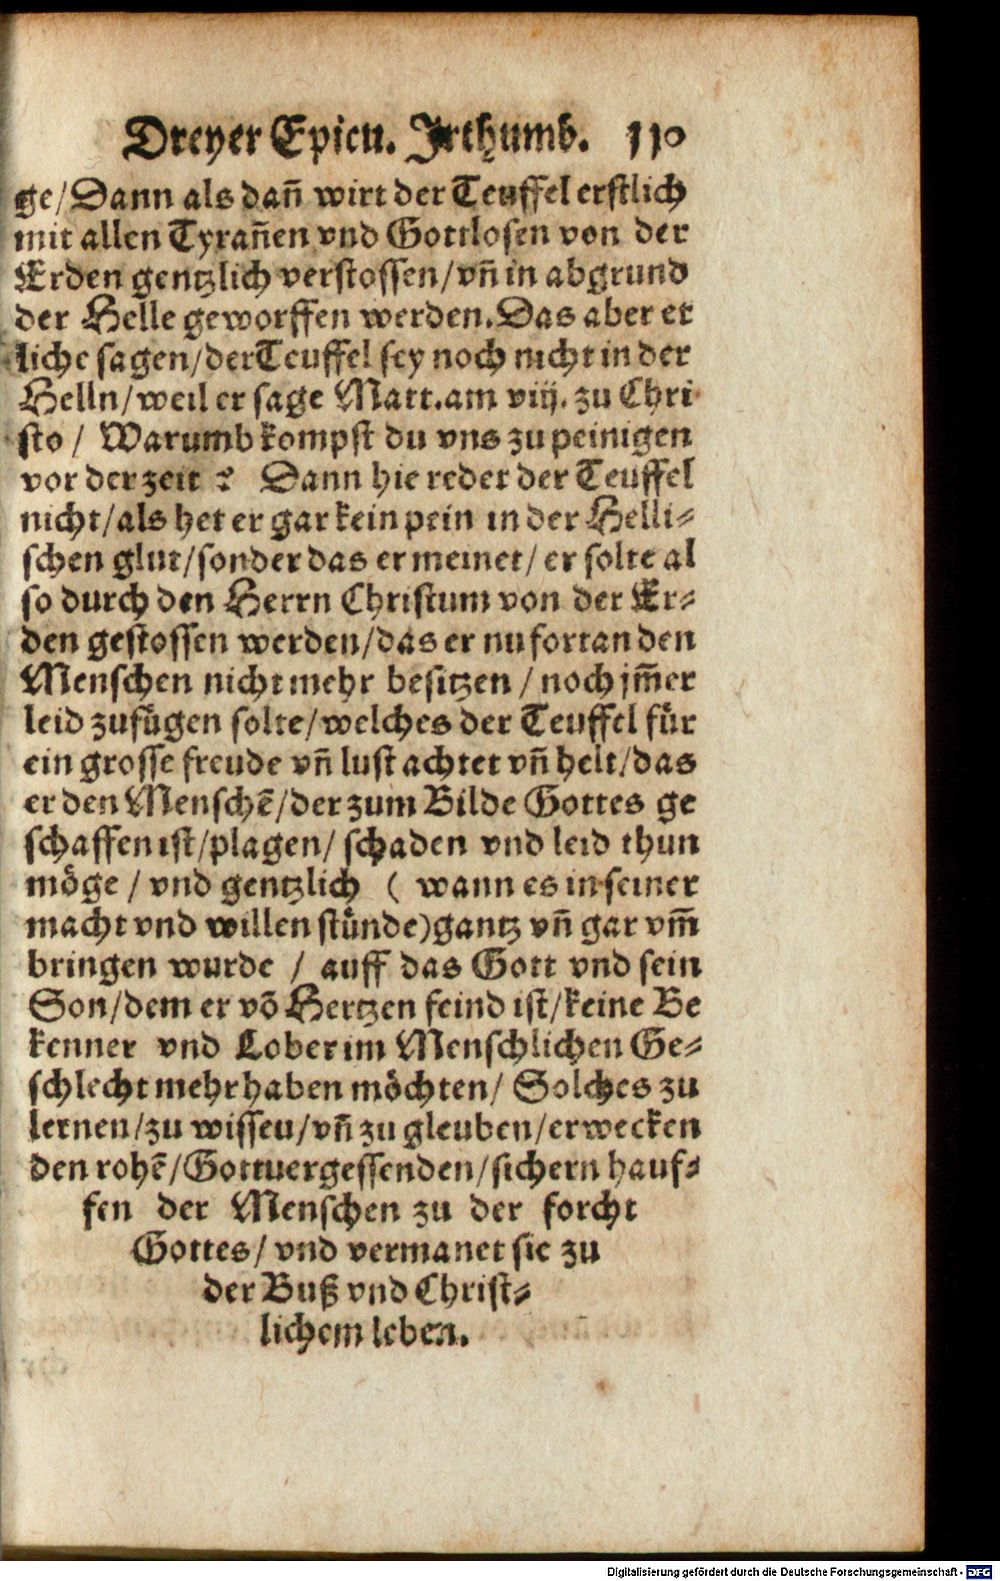 Dreyer Epicu. Jrthumb. 110
ge/Dann als dañ wirt der Teuffel erstlich
mit allen Tyrañen vnd Gottlosen von der
Erden gentzlich verstossen/vñ in abgrund
der Helle geworffen werden. Das aber et
liche sagen/der Teuffel sey noch nicht in der
Helln/weil er sage Matt. am viij. zu Chri
sto / Warumb kompst du vns zu peinigen
vor der zeit ? Dann hie redet der Teuffel
nicht/als het er gar kein pein in der Helli⸗
schen glut/sonder das er meinet/ er solte al
so durch den Herrn Christum von der Er⸗
den gestossen werden/das er nu fortan den
Menschen nicht mehr besitzen / noch jm̃er
leid zufügen solte/welches der Teuffel für
ein grosse freude vñ lust achtet vñ helt/das
er den Menschẽ/der zum Bilde Gottes ge
schaffen ist/plagen/ schaden vnd leid thun
möge / vnd gentzlich ( wann es in seiner
macht vnd willen stünde)gantz vñ gar vm̃
bringen wurde / auff das Gott vnd sein
Son/dem er võ Hertzen feind ist/keine Be
kenner vnd Lober im Menschlichen Ge⸗
schlecht mehr haben möchten/ Solches zu
lernen/zu wissen/vñ zu gleuben/erwecken
den rohẽ/Gottuergessenden/sichern hauf⸗
fen der Menschen zu der forcht
Gottes/ vnd vermanet sie zu
der Buß vnd Christ⸗
lichem leben.
Digitalisierung gefördert durch die Deutsche Forschungsgemeinschaft - DFG